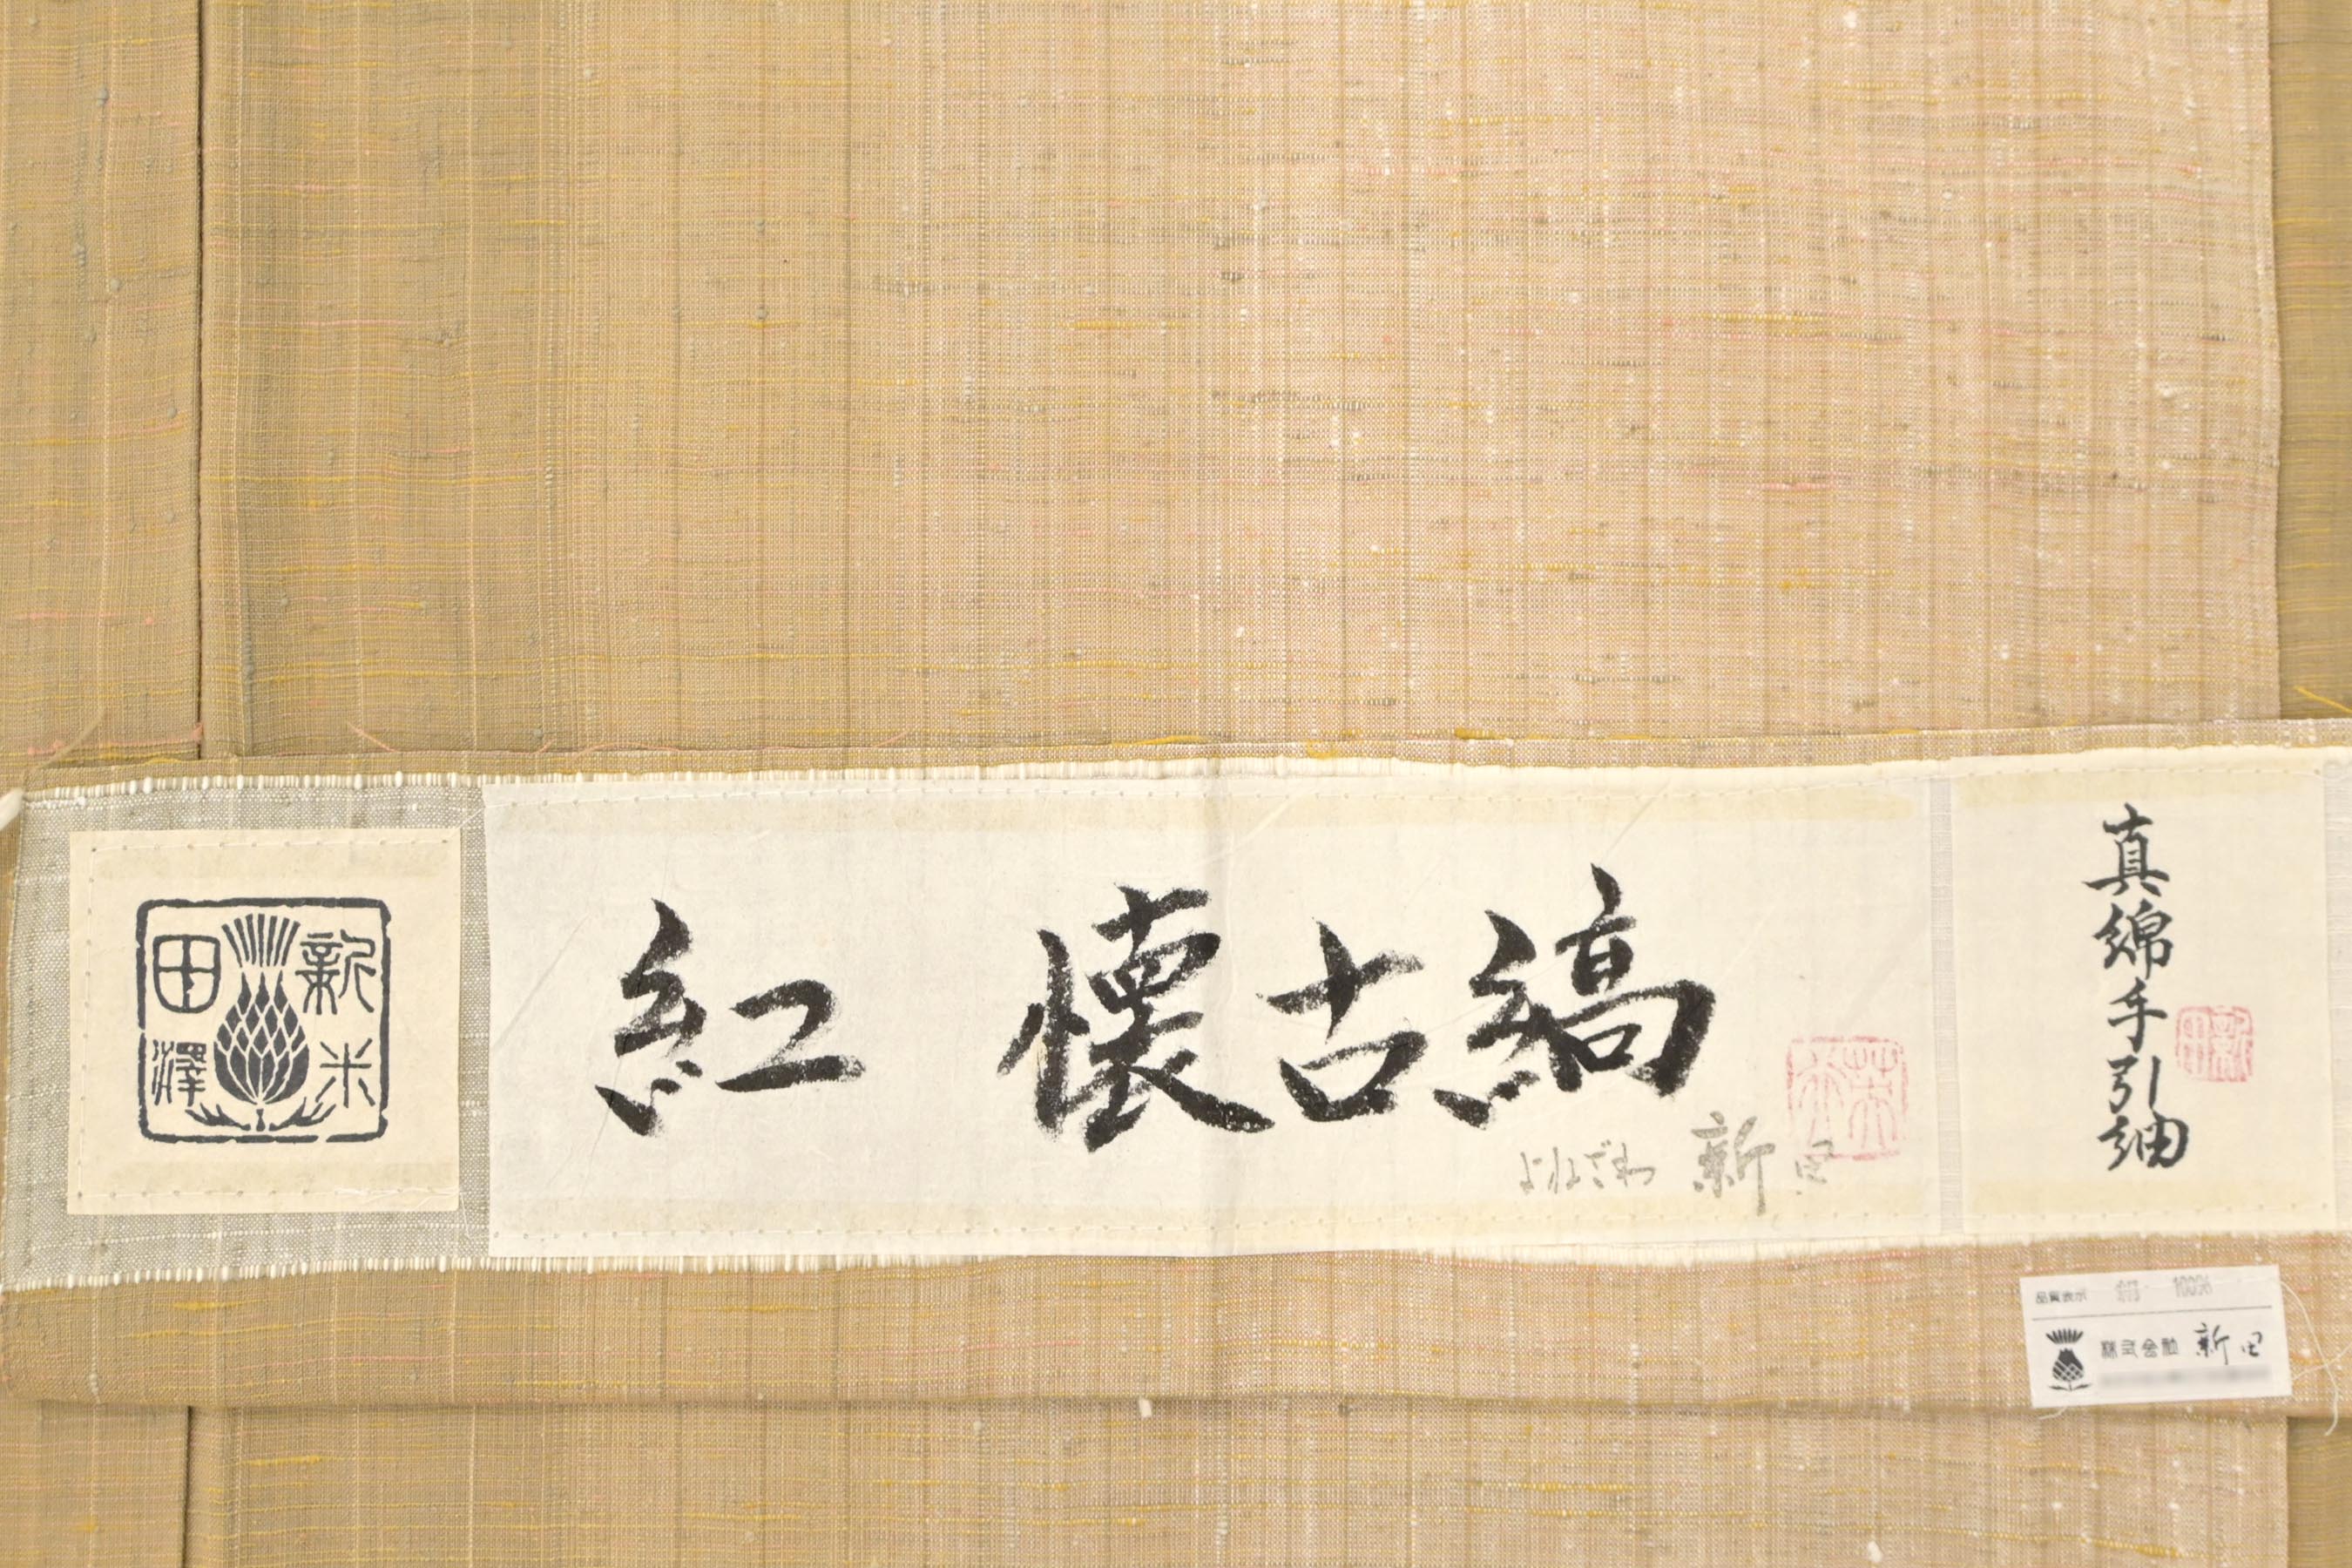 新田
米澤
紅 懐古縞
よねざわ 新田
真綿手引紬
新田
品質表示 絹 100%
株式会社 新田